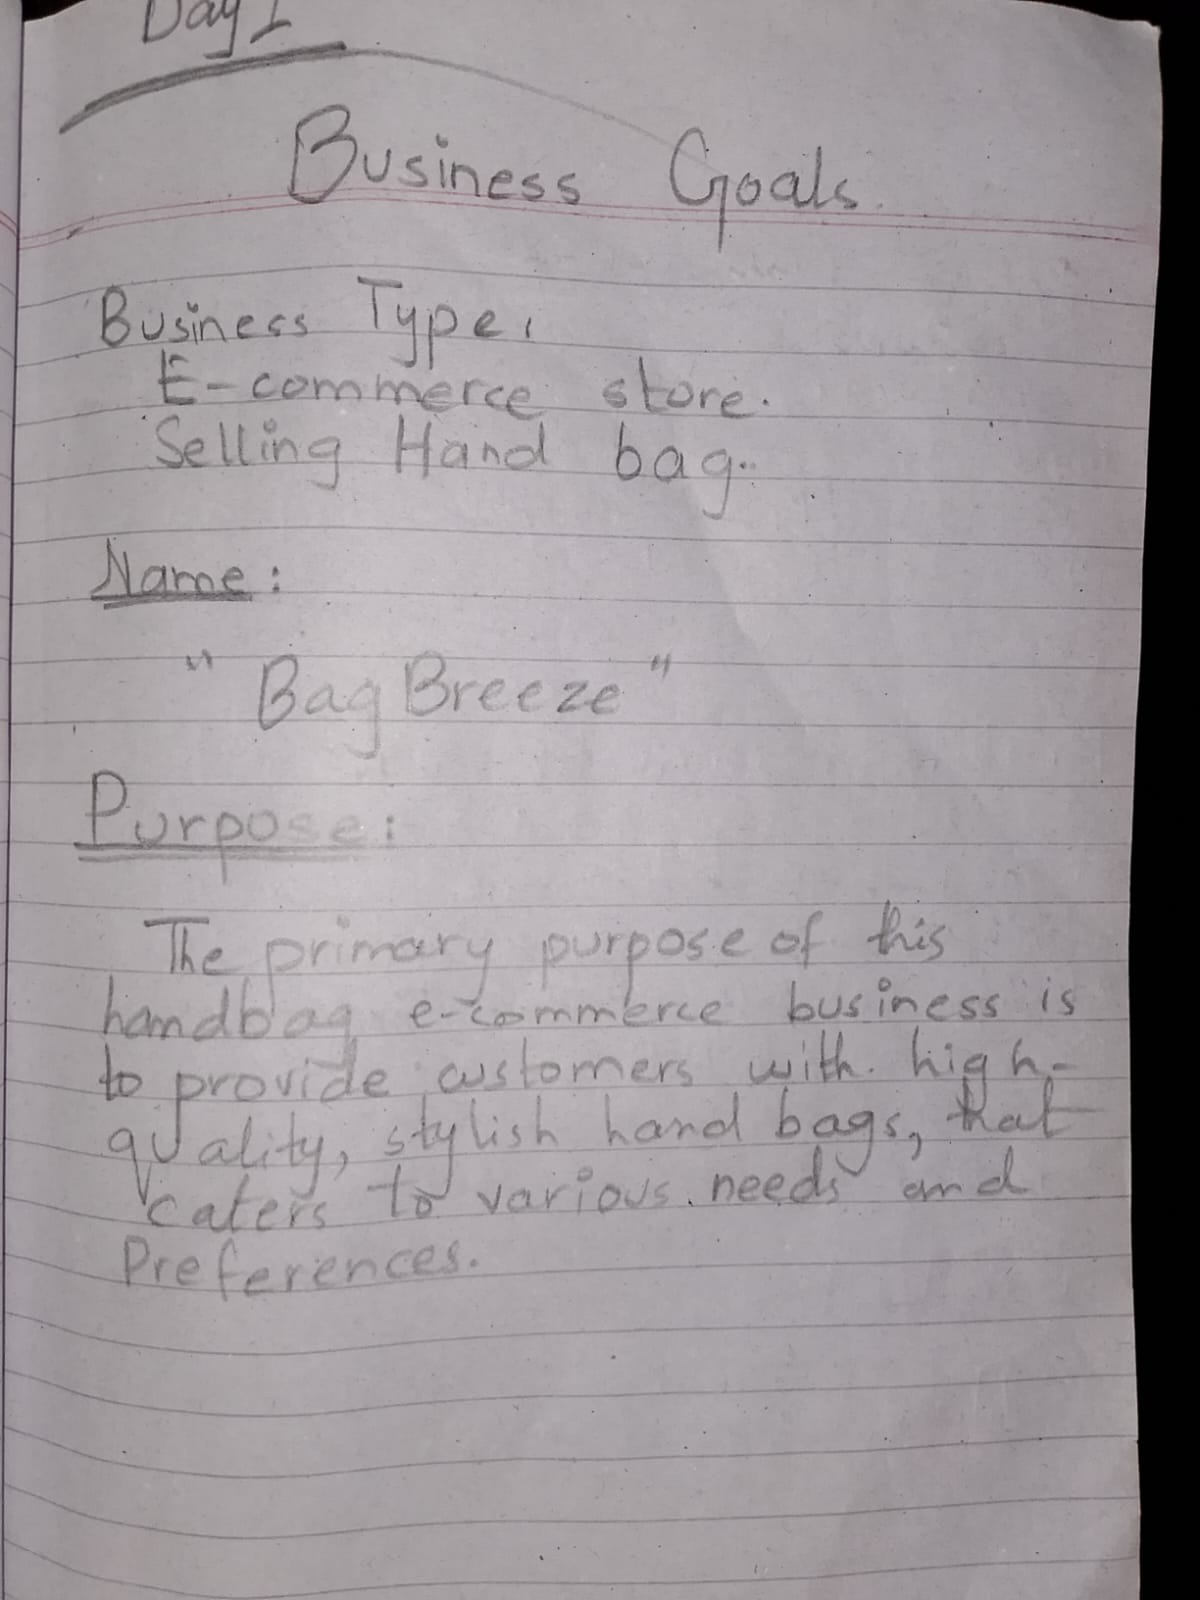 Day 1
Business Goals.
Business Type:
E-commerce store.
Selling Hand bag..
Name:
"BagBreeze"
Purpose:
The primary purpose of this
handbag e-commerce business is
to provide customers with high-
quality, stylish hand bags, that
caters to various needs and
Preferences.